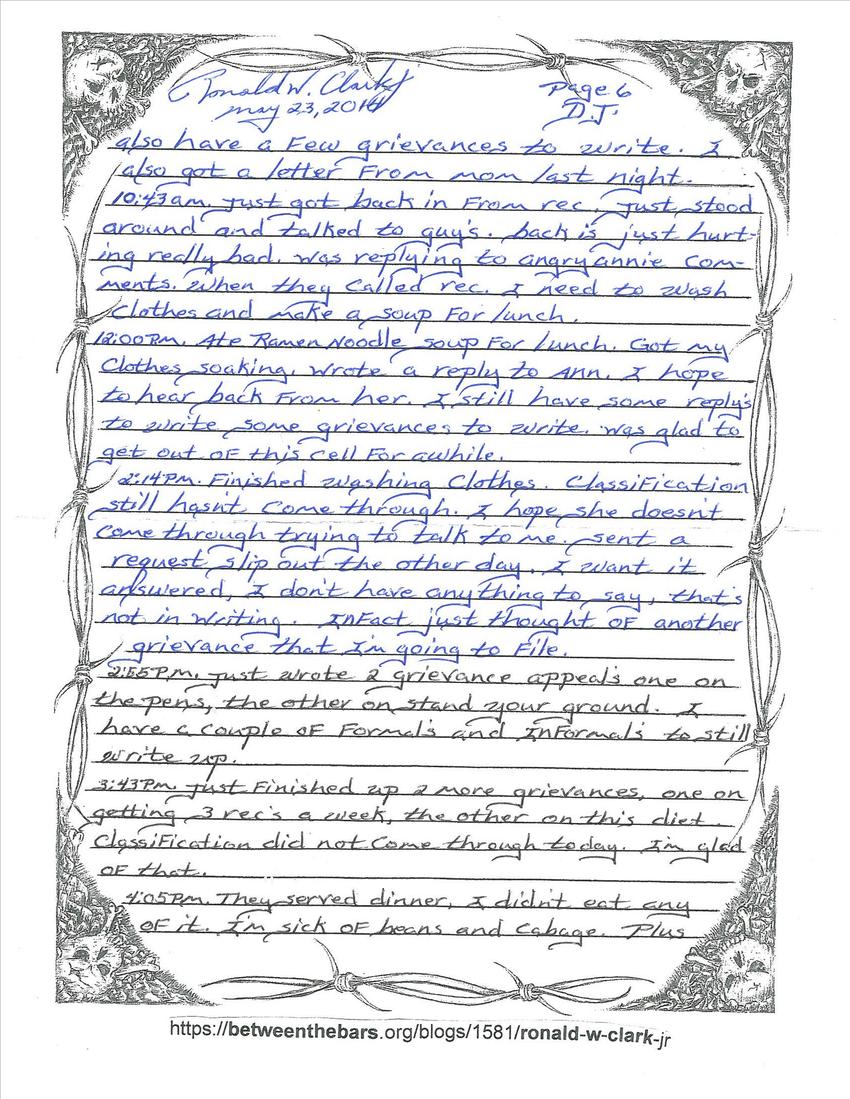 Ronald W. Clark Jr
Page 6
May 23, 2016
D.J.
also have a Few grievances to write. I
also got a letter From mom last night.
10:43am. Just got back in From rec, Just stood
around and talked to guy's. back is just hurt-
ing really bad. was replying to angry annie com-
ments. When they called rec. I need to wash
Clothes and make a soup For lunch.
12:00Pm. Ate Ramen Noodle soup For lunch. Got my
Clothes soaking, wrote a reply to Ann. I hope
to hear back From her. I still have some reply's
to write some grievances to write. was glad to
get out OF this cell For awhile.
2:14Pm. Finished washing Clothes. ClassiFication
still hasn't Come through. I hope she doesn't
come through trying to talk to me. Sent a
request slip out the other day. I want it
answered, I don't have anything to say, that's
not in Writing. InFact just thought OF another
grievance that I'm going to File.
2:55P.m. Just wrote 2 grievance appeal's one on
the pens, the other on stand your ground. I
have a couple OF Formal's and InFormal's to still
write up.
3:43Pm. Just Finished up 2 more grievances, one on
getting 3 rec's a week, the other on this diet.
ClassiFication did not Come through today. I'm glad
OF that.
4:05Pm. They served dinner, I didn't eat any
OF it. I'm sick OF beans and Cabage. Plus
https://betweenthebars.org/blogs/1581/ronald-w-clark-jr